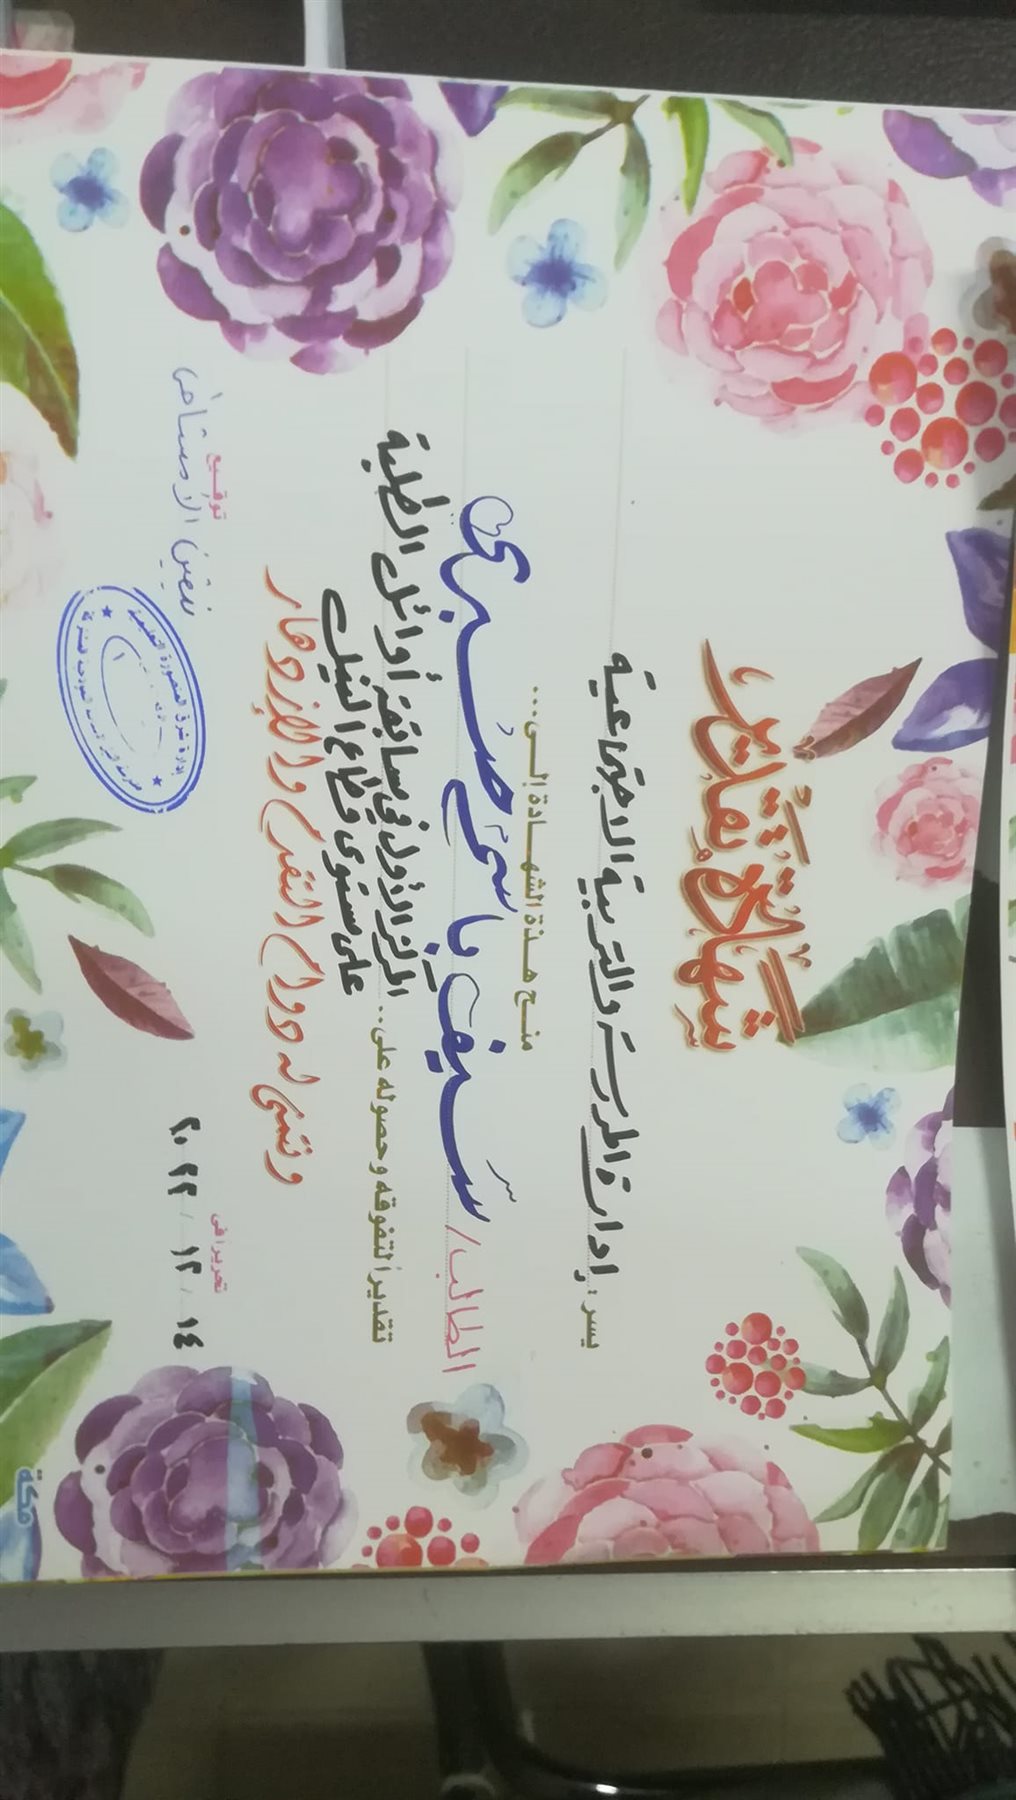 شهادة تقدير
يسر: إدارة المدرسة والتربية الاجتماعية
منح هذة الشهادة إلى...
الطالب/ سيف ياسر صبرى
تقديراً لتفوقه وحصوله على.. المركز الأول في مسابقة أوائل الطلبة
على مستوى قطاع النيل
ونتمنى له دوام التقدم والإزدهار
تحريراً فى
١٤ / ١٢ / ٢٠٢٢
توقيع
نيفين الأمشاطى
إدارة شرق المنصورة التعليمية
مكة